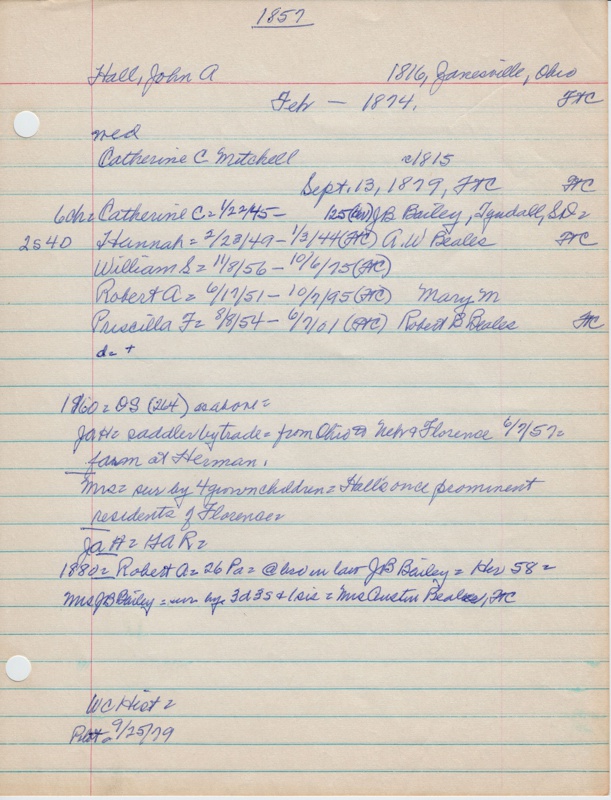 1857
Hall, John A 1816, Janesville, Ohio
Feb — 1874. FtC
med
Catherine C Mitchell c1815
Sept. 13, 1879, FtC FtC
6ch= Catherine C = 1/22/45 – 125 J B Bailey, Tyndall, S.D.=
2s 4D Hannah = 2/23/49 – 1/3/44 (FtC) A. W Beales FtC
William S = 11/8/56 – 10/6/75 (FtC)
Robert A = 6/17/51 – 10/7/95 (FtC) Mary M
Priscilla F = 8/8/54 – 6/7/01 (FtC) Robert B Beales FtC
d = +
1860 = DS (264) as above =
JaH = saddler by trade = from Ohio Nebr Florence 6/7/57 =
farm at Herman.
Mrs = sur by 4 grown children = Hall's once prominent
residents of Florence =
JaH = GAR =
1880 = Robert A = 26 Pa = @ bro in law JB Bailey = Her 58 =
Mrs JB Bailey = sur by 3d 3s & 1 sis = Mrs Austin Beales, FtC
WC Hist =
Platt = 9/25/79